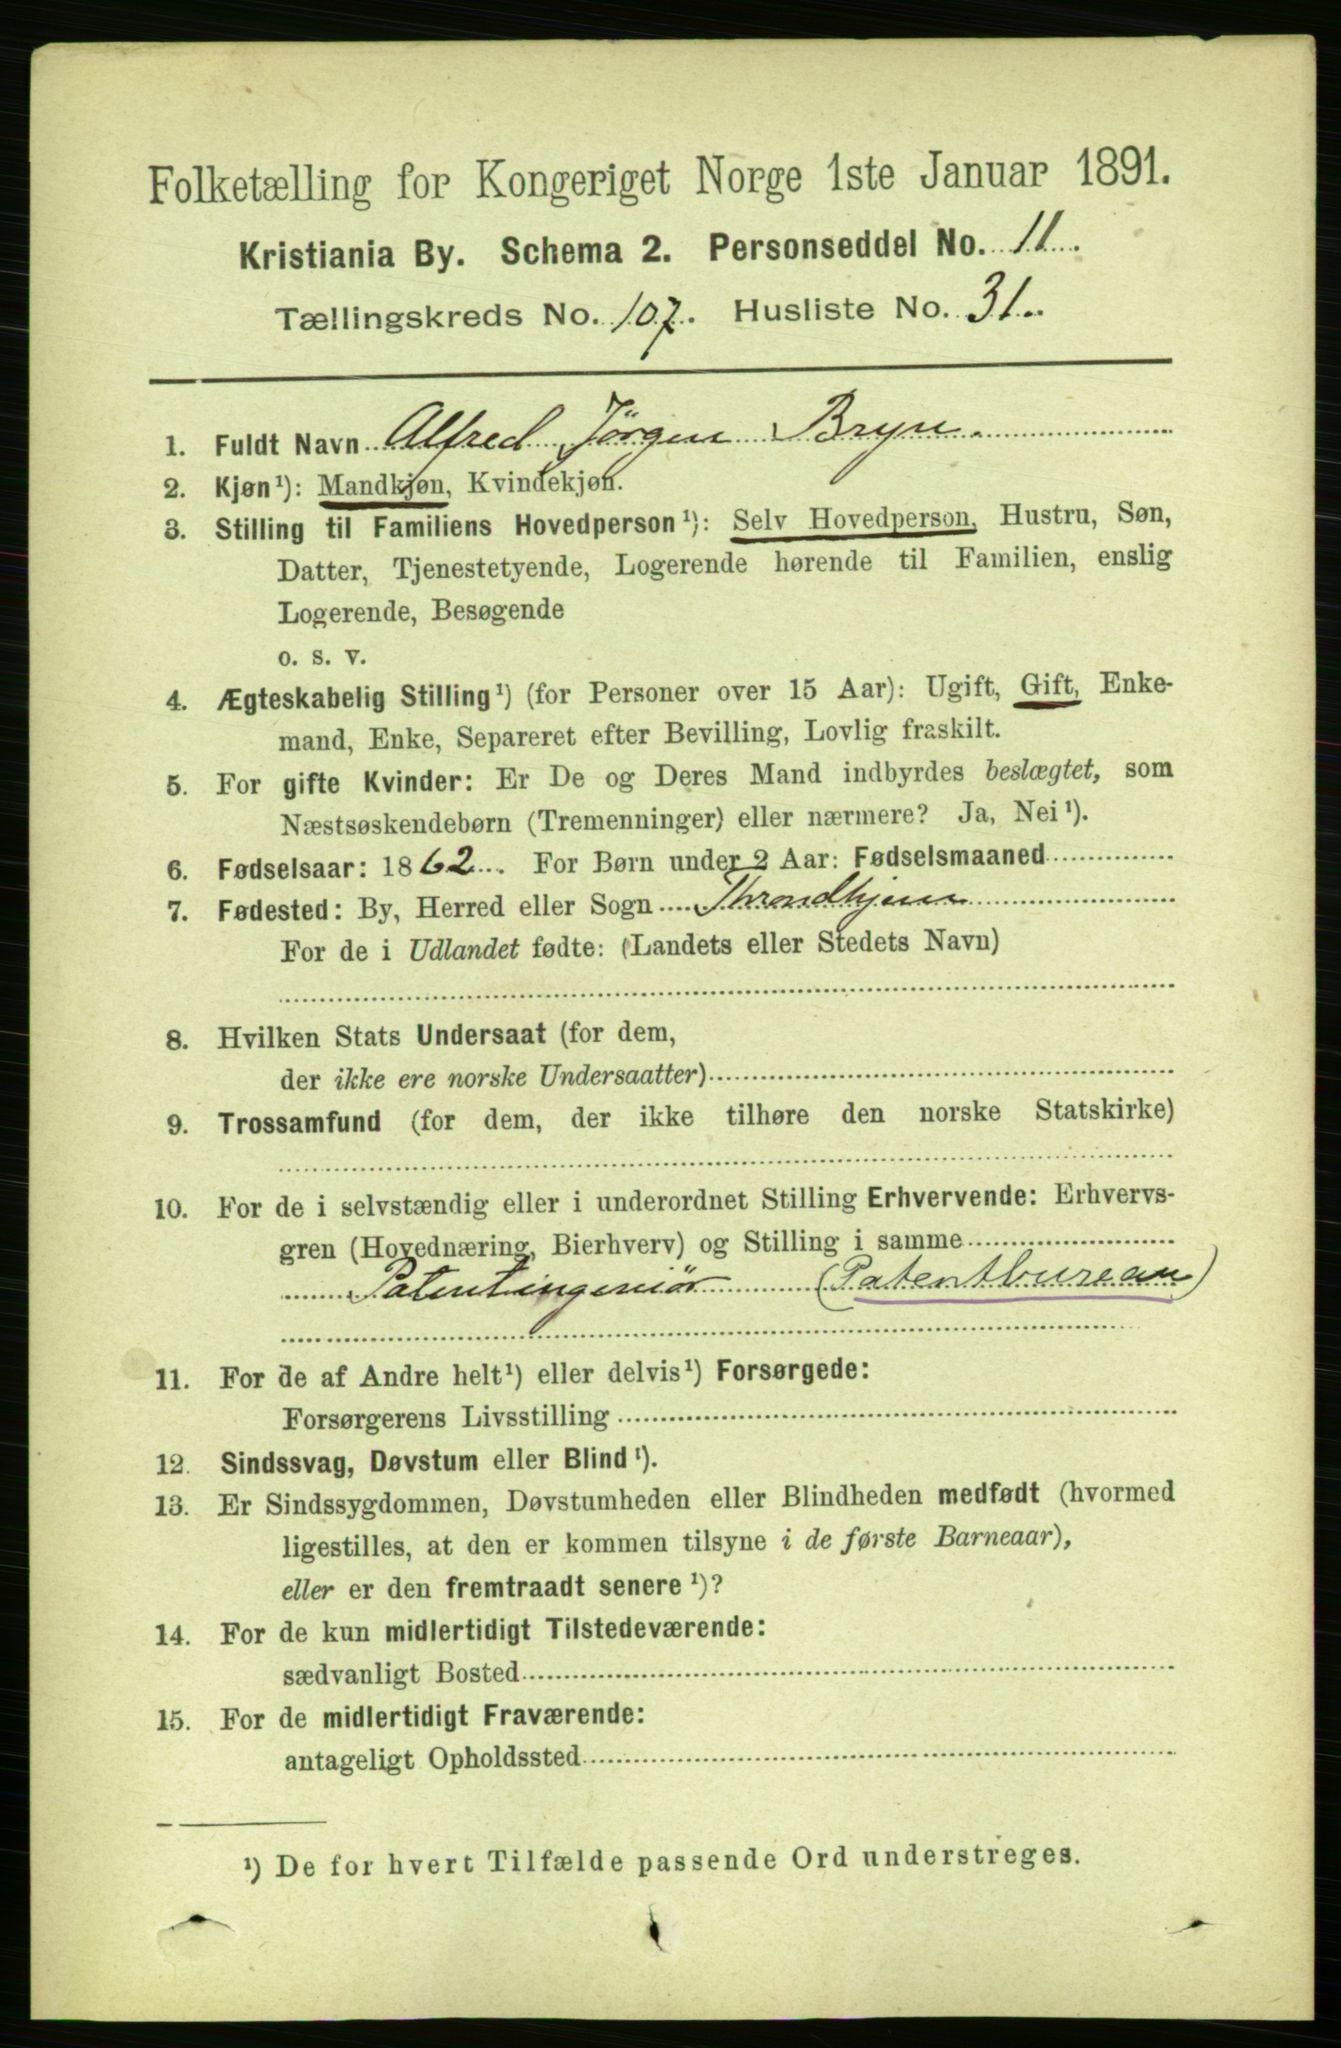 Folketælling for Kongeriget Norge 1ste Januar 1891.
Kristiania By. Schema 2. Personseddel No. 11.
Tællingskreds No. 107. Husliste No. 31.
1. Fuldt Navn Alfred Jörgen Bryn
2. Kjøn¹): Mandkjøn, Kvindekjøn.
3. Stilling til Familiens Hovedperson¹): Selv Hovedperson, Hustru, Søn,
Datter, Tjenestetyende, Logerende hørende til Familien, enslig
Logerende, Besøgende
o. s. v.
4. Ægteskabelig Stilling¹) (for Personer over 15 Aar): Ugift, Gift, Enke-
mand, Enke, Separeret efter Bevilling, Lovlig fraskilt.
5. For gifte Kvinder: Er De og Deres Mand indbyrdes beslægtet, som
Næstsøskendebørn (Tremenninger) eller nærmere? Ja, Nei¹).
6. Fødselsaar: 1862. For Børn under 2 Aar: Fødselsmaaned
7. Fødested: By, Herred eller Sogn Throndhjem
For de i Udlandet fødte: (Landets eller Stedets Navn)
8. Hvilken Stats Undersaat (for dem,
der ikke ere norske Undersaatter)
9. Trossamfund (for dem, der ikke tilhøre den norske Statskirke)
10. For de i selvstændig eller i underordnet Stilling Erhvervende: Erhvervs-
gren (Hovednæring, Bierhverv) og Stilling i samme
Patentingeniör (Patentbureau)
11. For de af Andre helt¹) eller delvis¹) Forsørgede:
Forsørgerens Livsstilling
12. Sindssvag, Døvstum eller Blind¹).
13. Er Sindssygdommen, Døvstumheden eller Blindheden medfødt (hvormed
ligestilles, at den er kommen tilsyne i de første Barneaar),
eller er den fremtraadt senere¹)?
14. For de kun midlertidigt Tilstedeværende:
sædvanligt Bosted
15. For de midlertidigt Fraværende:
antageligt Opholdssted
¹) De for hvert Tilfælde passende Ord understreges.